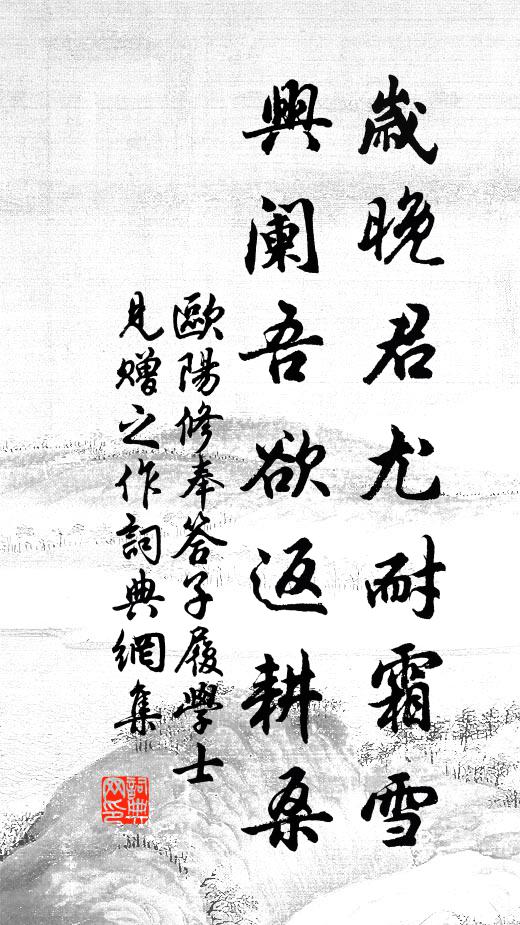 歲晚君尤耐霜雪
興闌吾欲返耕桑
歐陽修奉答子履學士
見贈之作詞典網集
詞典
网印